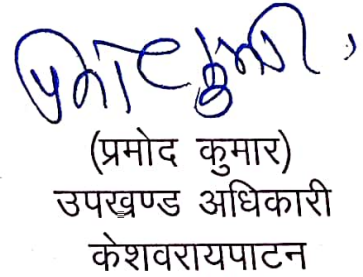 प्रमोद कुमार
(प्रमोद कुमार)
उपखण्ड अधिकारी
केशवरायपाटन